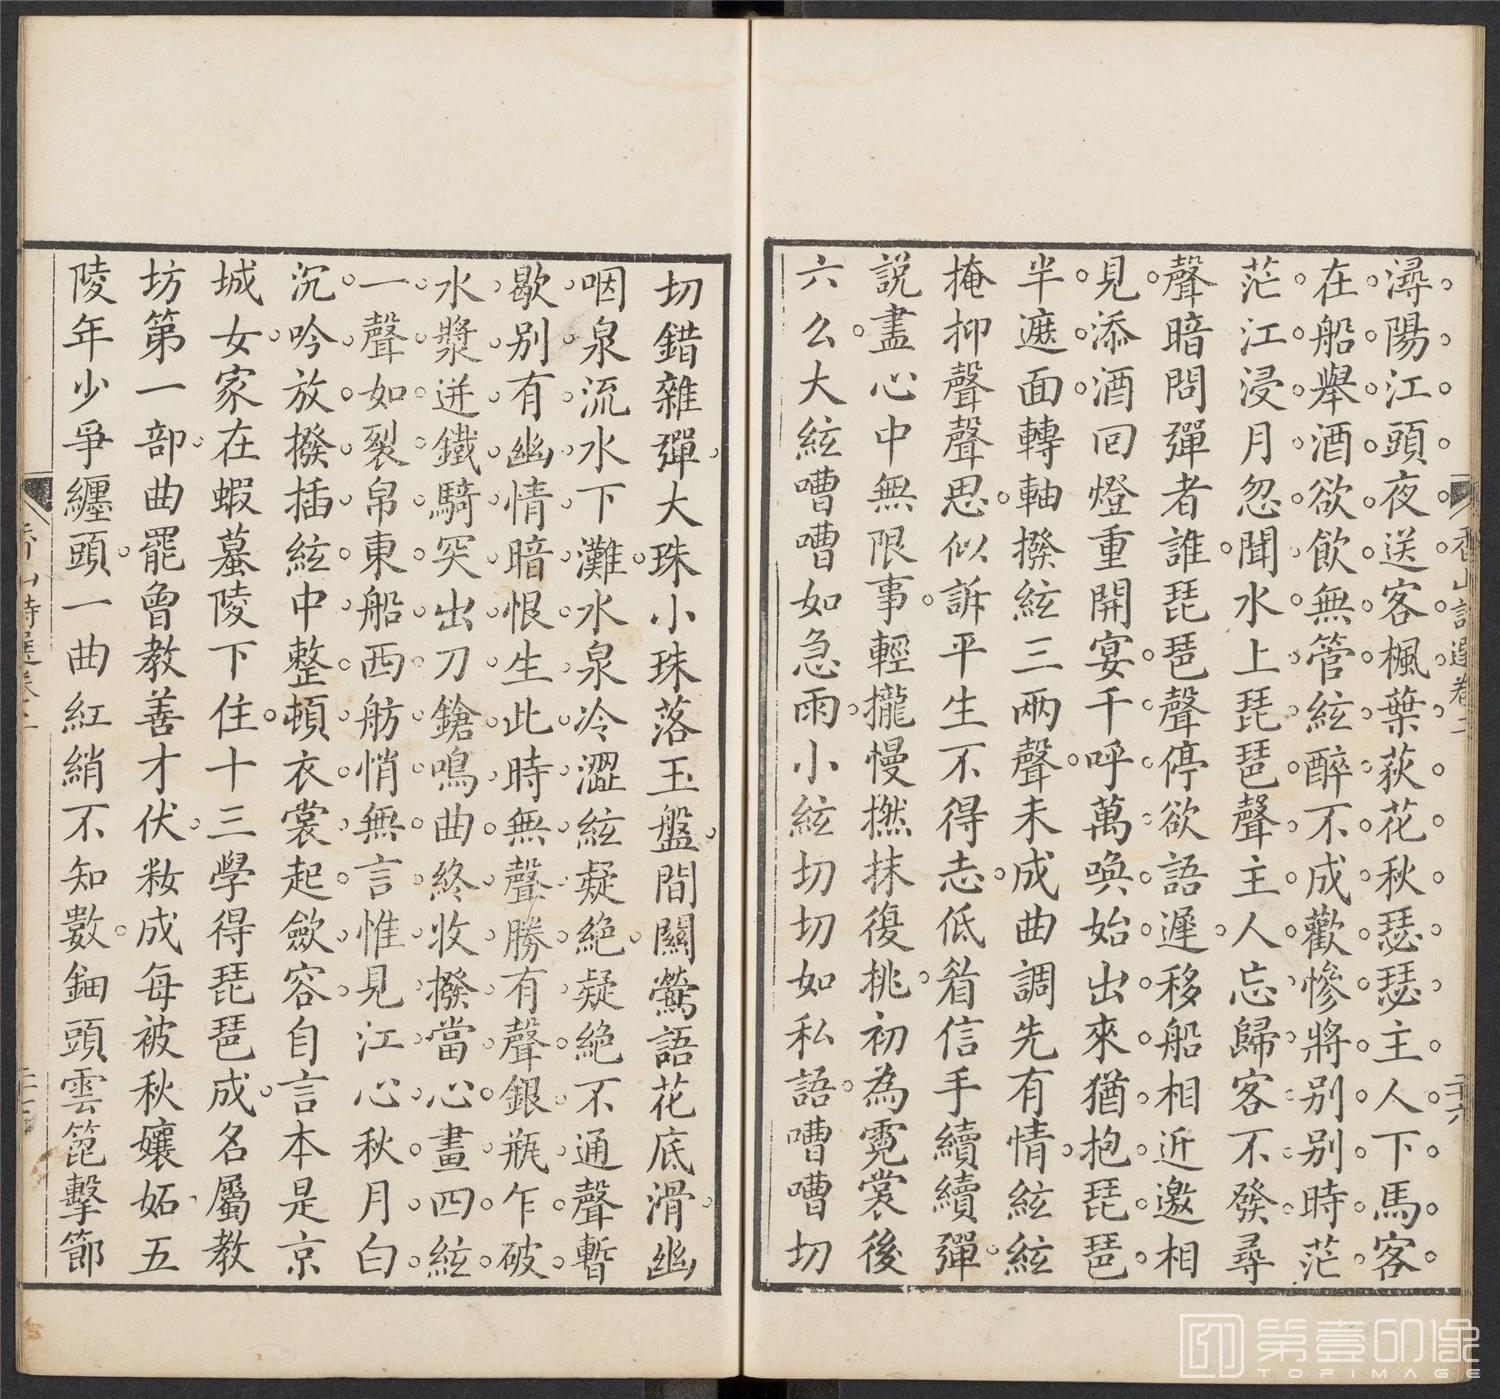 潯陽江頭夜送客楓葉荻花秋瑟瑟主人下馬客
在船舉酒欲飲無管絃醉不成歡慘將别别時茫
茫江浸月忽聞水上琵琶聲主人忘歸客不發尋
聲暗問彈者誰琵琶聲停欲語遲移船相近邀相
見添酒回燈重開宴千呼萬喚始出來猶抱琵琶
半遮面轉軸撥絃三兩聲未成曲調先有情絃絃
掩抑聲聲思似訴平生不得志低眉信手續續彈
說盡心中無限事輕攏慢撚抹復挑初為霓裳後
六么大絃嘈嘈如急雨小絃切切如私語嘈嘈切
香山詩選卷二
二十六
切錯雜彈大珠小珠落玉盤間關鶯語花底滑幽
咽泉流水下灘水泉冷澀絃疑絕疑絕不通聲暫
歇别有幽情暗恨生此時無聲勝有聲銀瓶乍破
水漿迸鐵騎突出刀鎗鳴曲終收撥當心畫四絃
一聲如裂帛東船西舫悄無言惟見江心秋月白
沉吟放撥插絃中整頓衣裳起斂容自言本是京
城女家在蝦蟇陵下住十三學得琵琶成名屬教
坊第一部曲罷曾教善才伏粧成每被秋孃妬五
陵年少爭纏頭一曲紅綃不知數鈿頭雲篦擊節
香山詩選卷二
第壹印像
TOPIMAGE